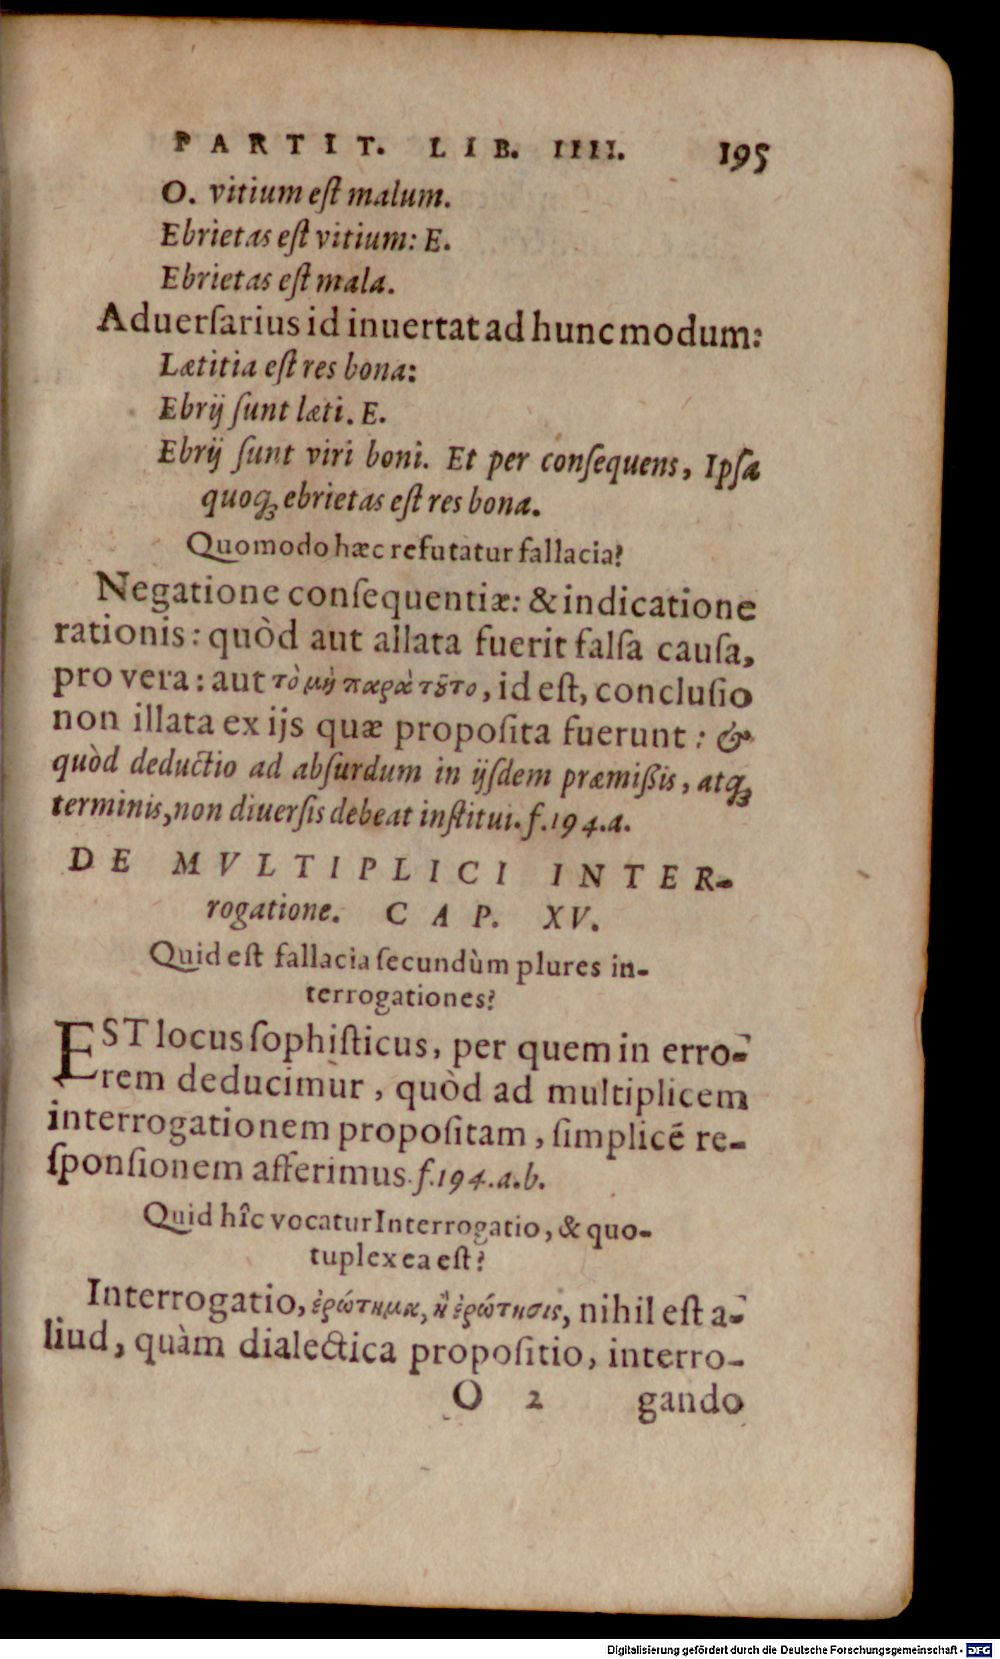 PARTIT. LIB. IIII. 195
O. vitium eſt malum.
Ebrietas eſt vitium: E.
Ebrietas eſt mala.
Aduerſarius id inuertat ad hunc modum:
Lætitia eſt res bona:
Ebrij ſunt læti. E.
Ebrij ſunt viri boni. Et per conſequens, Ipſa
quoq́ꝫ ebrietas eſt res bona.
Quomodo hæc refutatur fallacia?
Negatione conſequentiæ: & indicatione
rationis: quòd aut allata fuerit falſa cauſa,
pro vera: aut τὸ μὴ παρὰ τȣ̃το, id eſt, concluſio
non illata ex ijs quæ propoſita fuerunt: &
quòd deductio ad abſurdum in ijſdem præmißis, atq́ꝫ
terminis, non diuerſis debeat inſtitui. f.194.a.
DE MVLTIPLICI INTER-
rogatione. CAP. XV.
Quid eſt fallacia ſecundùm plures in-
terrogationes?
EST locus ſophiſticus, per quem in erro-
rem deducimur, quòd ad multiplicem
interrogationem propoſitam, ſimplicē re-
ſponſionem afferimus. f.194.a.b.
Quid hîc vocatur Interrogatio, & quo-
tuplex ea eſt?
Interrogatio, ἐρώτημα, ἢ ἐρώτησις, nihil eſt a-
liud, quàm dialectica propoſitio, interro-
O 2 gando
Digitalisierung gefördert durch die Deutsche Forschungsgemeinschaft - DFG